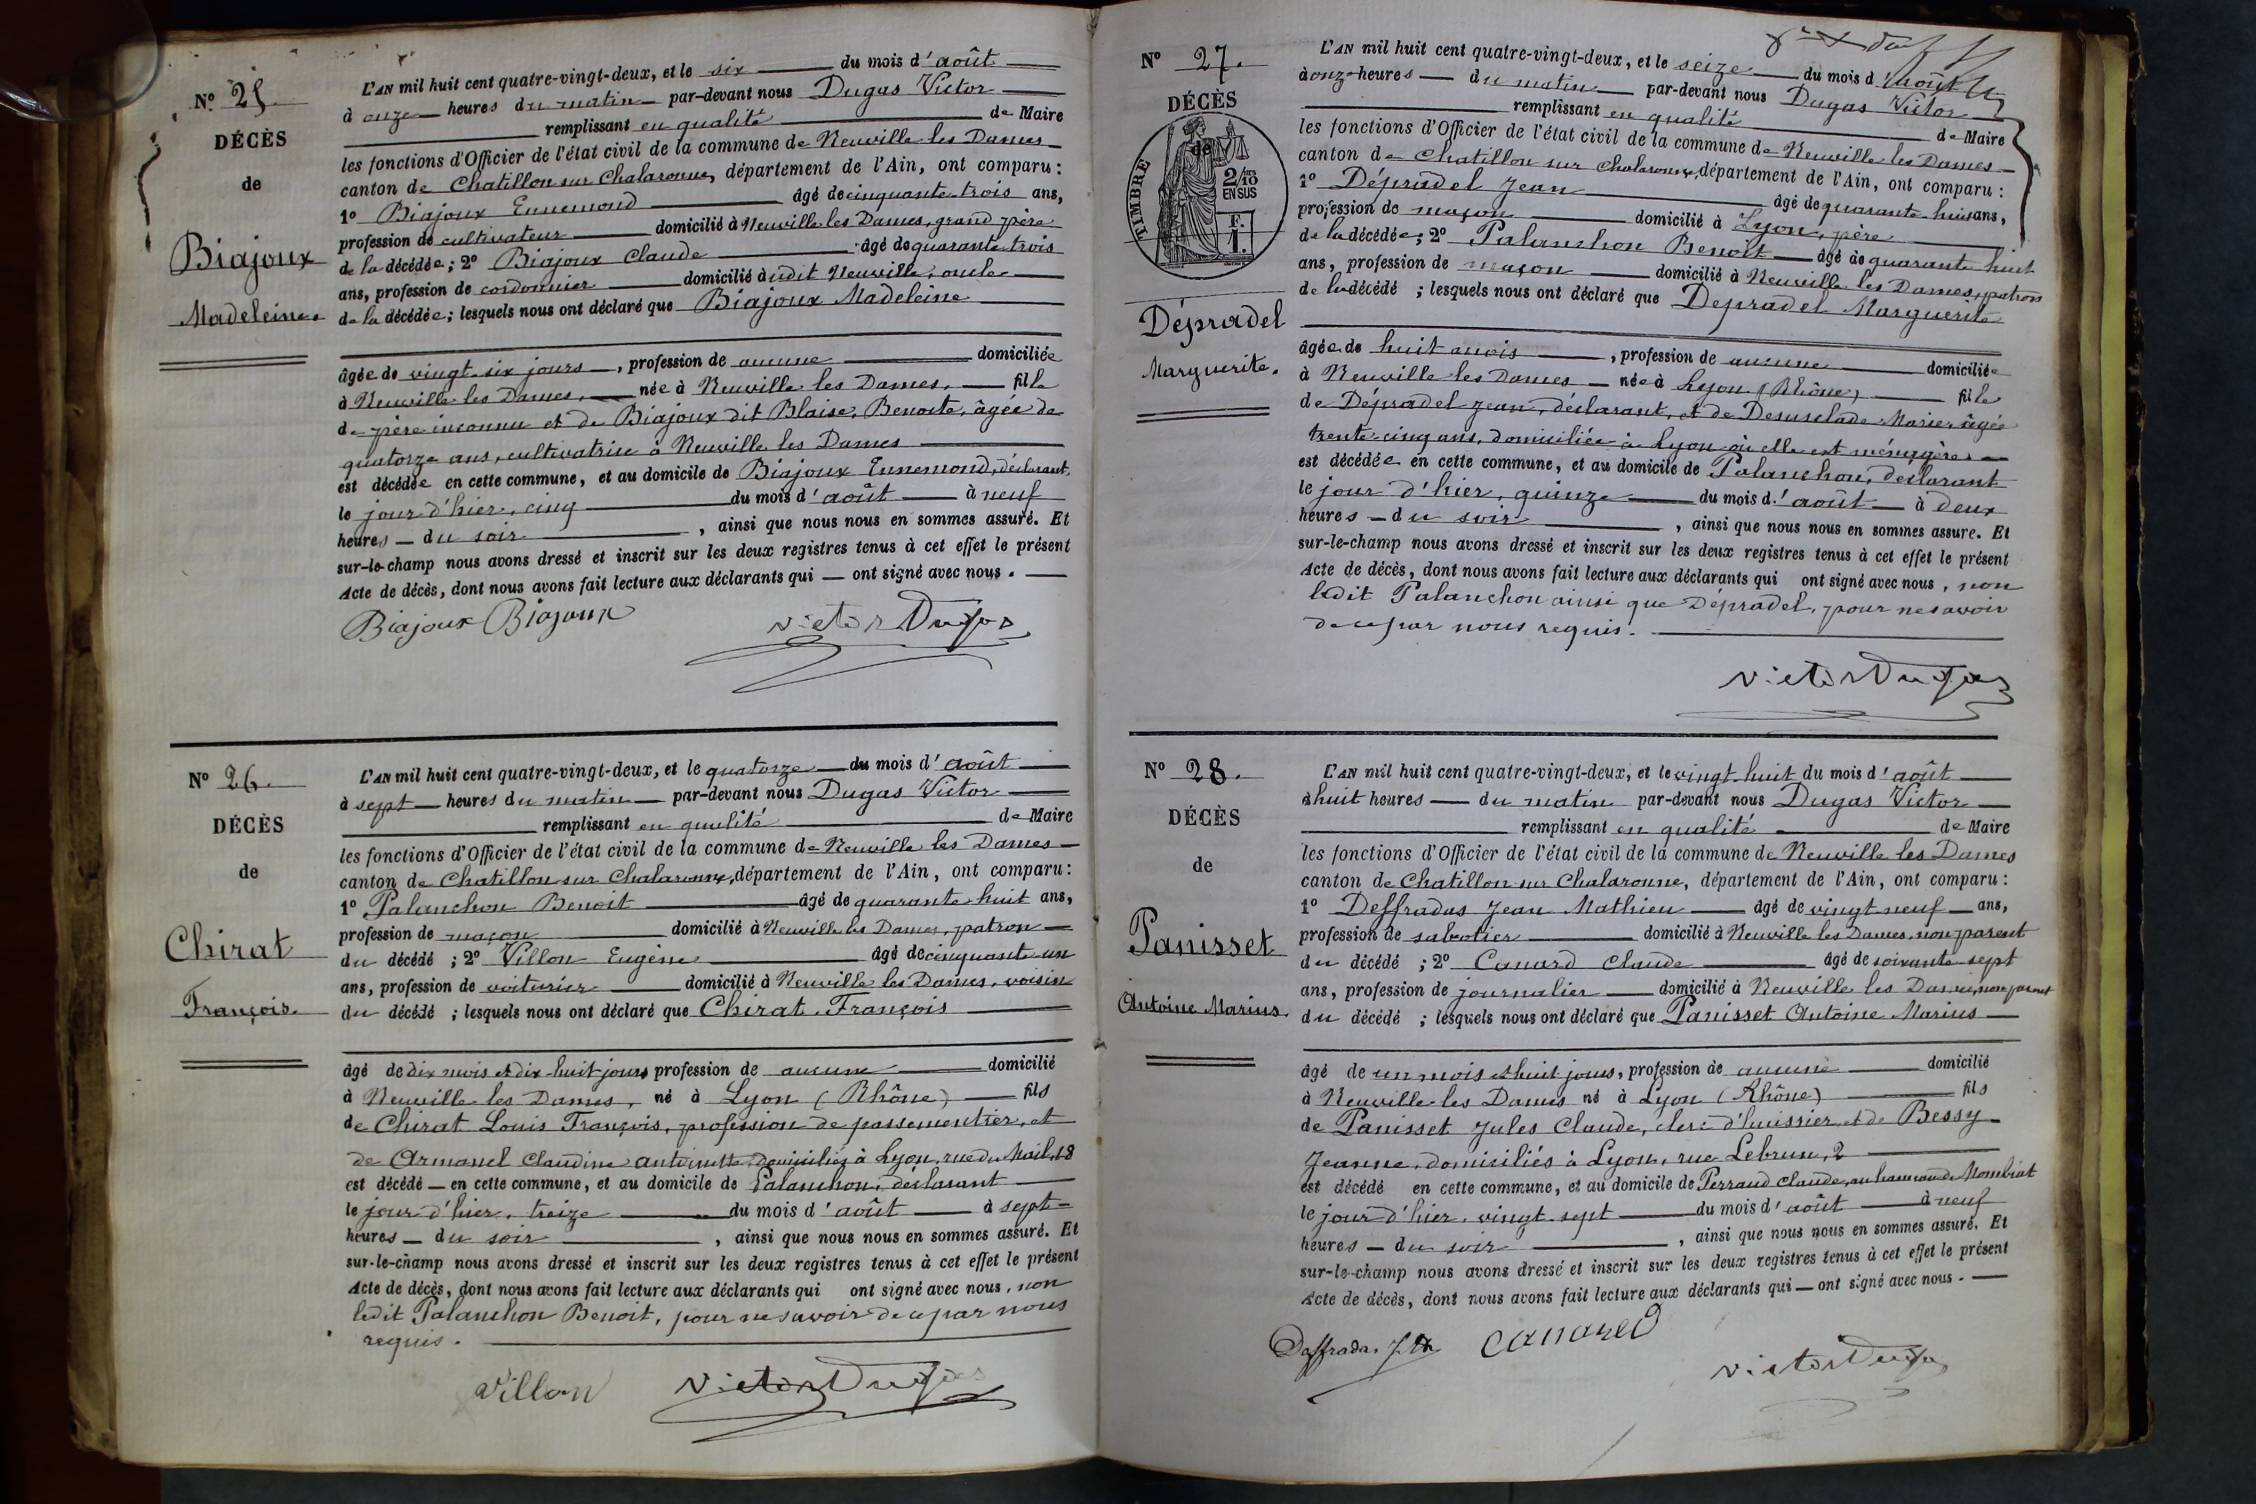 N° 25.
DÉCÈS
de
Biajoux
Madeleine.
L'AN mil huit cent quatre-vingt-deux, et le six du mois d'août
à onze heures du matin par-devant nous Dugas Victor
remplissant en qualité de Maire
les fonctions d'Officier de l'état civil de la commune de Neuville les Dames
canton de Chatillon sur Chalaronne, département de l'Ain, ont comparu :
1° Biajoux Ennemond âgé de cinquante-trois ans,
profession de cultivateur domicilié à Neuville les Dames, grand père
de la décédée ; 2° Biajoux Claude âgé de quarante trois
ans, profession de cordonnier domicilié à udit Neuville, oncle
de la décédée ; lesquels nous ont déclaré que Biajoux Madeleine
âgée de vingt-six jours, profession de aucune domiciliée
à Neuville les Dames, née à Neuville les Dames, fille
de père inconnu et de Biajoux dit Blaise, Benoite, âgée de
quatorze ans, cultivatrice à Neuville les Dames
est décédée en cette commune, et au domicile de Biajoux Ennemond, déclarant,
le jour d'hier, cinq du mois d'août à neuf
heures du soir, ainsi que nous nous en sommes assuré. Et
sur-le-champ nous avons dressé et inscrit sur les deux registres tenus à cet effet le présent
Acte de décès, dont nous avons fait lecture aux déclarants qui ont signé avec nous.
Biajoux Biajoux Victor Dugas
N° 26.
DÉCÈS
de
Chirat
François.
L'AN mil huit cent quatre-vingt-deux, et le quatorze du mois d'août
à sept heures du matin par-devant nous Dugas Victor
remplissant en qualité de Maire
les fonctions d'Officier de l'état civil de la commune de Neuville les Dames
canton de Chatillon sur Chalaronne, département de l'Ain, ont comparu :
1° Palanchon Benoit âgé de quarante huit ans,
profession de maçon domicilié à Neuville les Dames, patron
du décédé ; 2° Villon Eugène âgé de cinquante un
ans, profession de voiturier domicilié à Neuville les Dames, voisin
du décédé ; lesquels nous ont déclaré que Chirat François
âgé de dix mois et dix-huit jours profession de aucune domicilié
à Neuville les Dames, né à Lyon (Rhône) fils
de Chirat Louis François, profession de passementier, et
de Armanel Claudine Antoinette domiciliés à Lyon, rue du Mail, 18
est décédé en cette commune, et au domicile de Palanchon, déclarant
le jour d'hier, treize du mois d'août à sept
heures du soir, ainsi que nous nous en sommes assuré. Et
sur-le-champ nous avons dressé et inscrit sur les deux registres tenus à cet effet le présent
Acte de décès, dont nous avons fait lecture aux déclarants qui ont signé avec nous, non
ledit Palanchon Benoit, pour ne savoir de ce par nous
requis.
Villon Victor Dugas
N° 27.
DÉCÈS
de
TIMBRE
2/10 EN SUS
F. 1.
Dépradel
Marguerite.
L'AN mil huit cent quatre-vingt-deux, et le seize du mois d'août
à onze heures du matin par-devant nous Dugas Victor
remplissant en qualité de Maire
les fonctions d'Officier de l'état civil de la commune de Neuville les Dames
canton de Chatillon sur Chalaronne, département de l'Ain, ont comparu :
1° Dépradel Jean âgé de quarante-huit ans,
profession de maçon domicilié à Lyon, père
de la décédée ; 2° Palanchon Benoit âgé de quarante huit
ans, profession de maçon domicilié à Neuville les Dames, patron
de la décédé ; lesquels nous ont déclaré que Dépradel Marguerite
âgée de huit mois, profession de aucune domiciliée
à Neuville les Dames née à Lyon (Rhône) fille
de Dépradel Jean, déclarant, et de Desusclade Marie, âgée
trente-cinq ans, domiciliée à Lyon où elle est ménagère
est décédée en cette commune, et au domicile de Palanchon, déclarant
le jour d'hier, quinze du mois d'août à deux
heures du soir, ainsi que nous nous en sommes assure. Et
sur-le-champ nous avons dressé et inscrit sur les deux registres tenus à cet effet le présent
Acte de décès, dont nous avons fait lecture aux déclarants qui ont signé avec nous, non
ledit Palanchon ainsi que Dépradel, pour ne savoir
de ce par nous requis.
Victor Dugas
N° 28.
DÉCÈS
de
Panisset
Antoine Marius.
L'AN mil huit cent quatre-vingt-deux, et le vingt huit du mois d'août
à huit heures du matin par-devant nous Dugas Victor
remplissant en qualité de Maire
les fonctions d'Officier de l'état civil de la commune de Neuville les Dames
canton de Chatillon sur Chalaronne, département de l'Ain, ont comparu :
1° Deffradas Jean Mathieu âgé de vingt neuf ans,
profession de sabotier domicilié à Neuville les Dames, non parent
du décédé ; 2° Canard Claude âgé de soixante sept
ans, profession de journalier domicilié à Neuville les Dames, non parent
du décédé ; lesquels nous ont déclaré que Panisset Antoine Marius
âgé de un mois et huit jours, profession de aucune domicilié
à Neuville les Dames né à Lyon (Rhône) fils
de Panisset Jules Claude, clerc d'huissier, et de Bessy
Jeanne, domiciliés à Lyon, rue Lebrun, 2
est décédé en cette commune, et au domicile de Perraud Claude, au hameau de Mombiat
le jour d'hier, vingt-sept du mois d'août à neuf
heures du soir, ainsi que nous nous en sommes assuré. Et
sur-le-champ nous avons dressé et inscrit sur les deux registres tenus à cet effet le présent
Acte de décès, dont nous avons fait lecture aux déclarants qui ont signé avec nous.
Canard
Victor Dugas